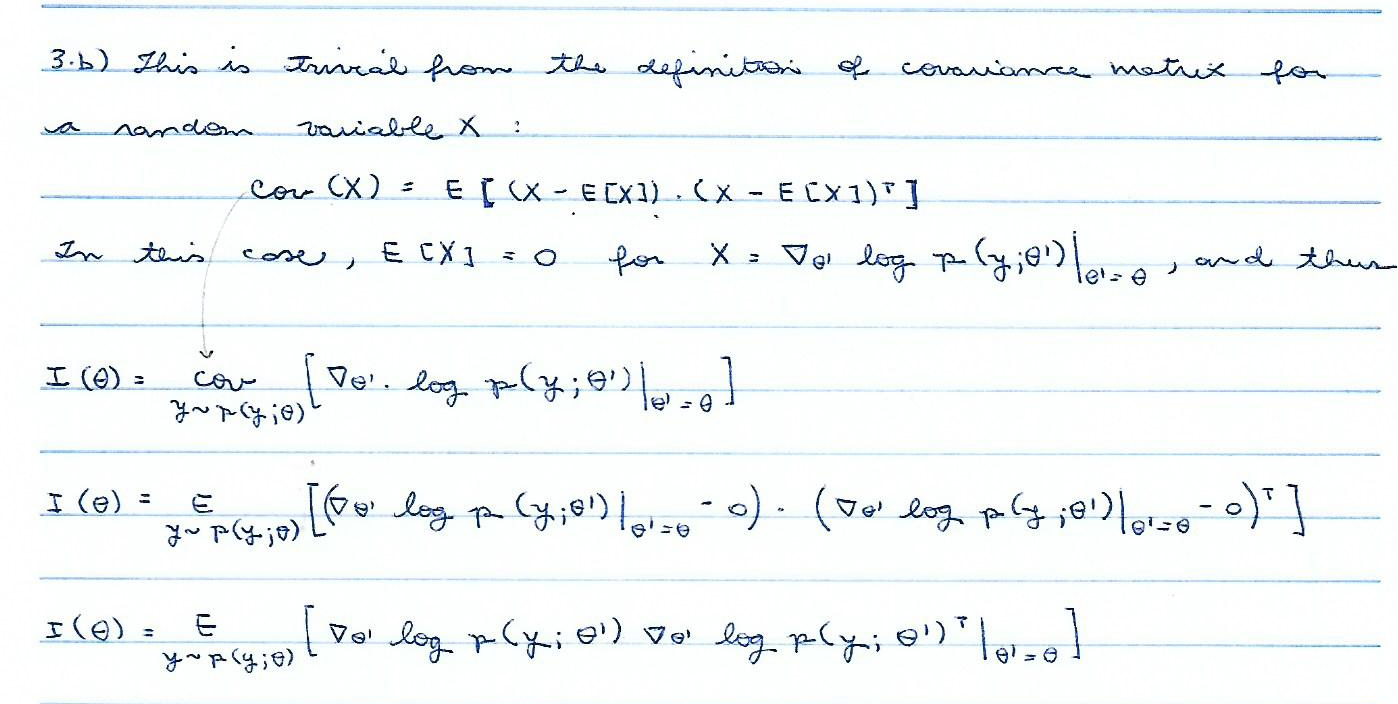 3.b) This is trivial from the definition of covariance matrix for
a random variable X :
cov (X) = E [ (X - E[X]) . (X - E[X])ᵀ ]
In this case, E[X] = 0 for X = ∇θ' log p(y;θ')|θ'=θ , and thus
I(θ) = cov y~p(y;θ) [ ∇θ'. log p(y;θ')|θ'=θ ]
I(θ) = E y~p(y;θ) [(∇θ' log p(y;θ')|θ'=θ - 0) . (∇θ' log p(y;θ')|θ'=θ - 0)ᵀ ]
I(θ) = E y~p(y;θ) [ ∇θ' log p(y;θ') ∇θ' log p(y;θ')ᵀ |θ'=θ ]